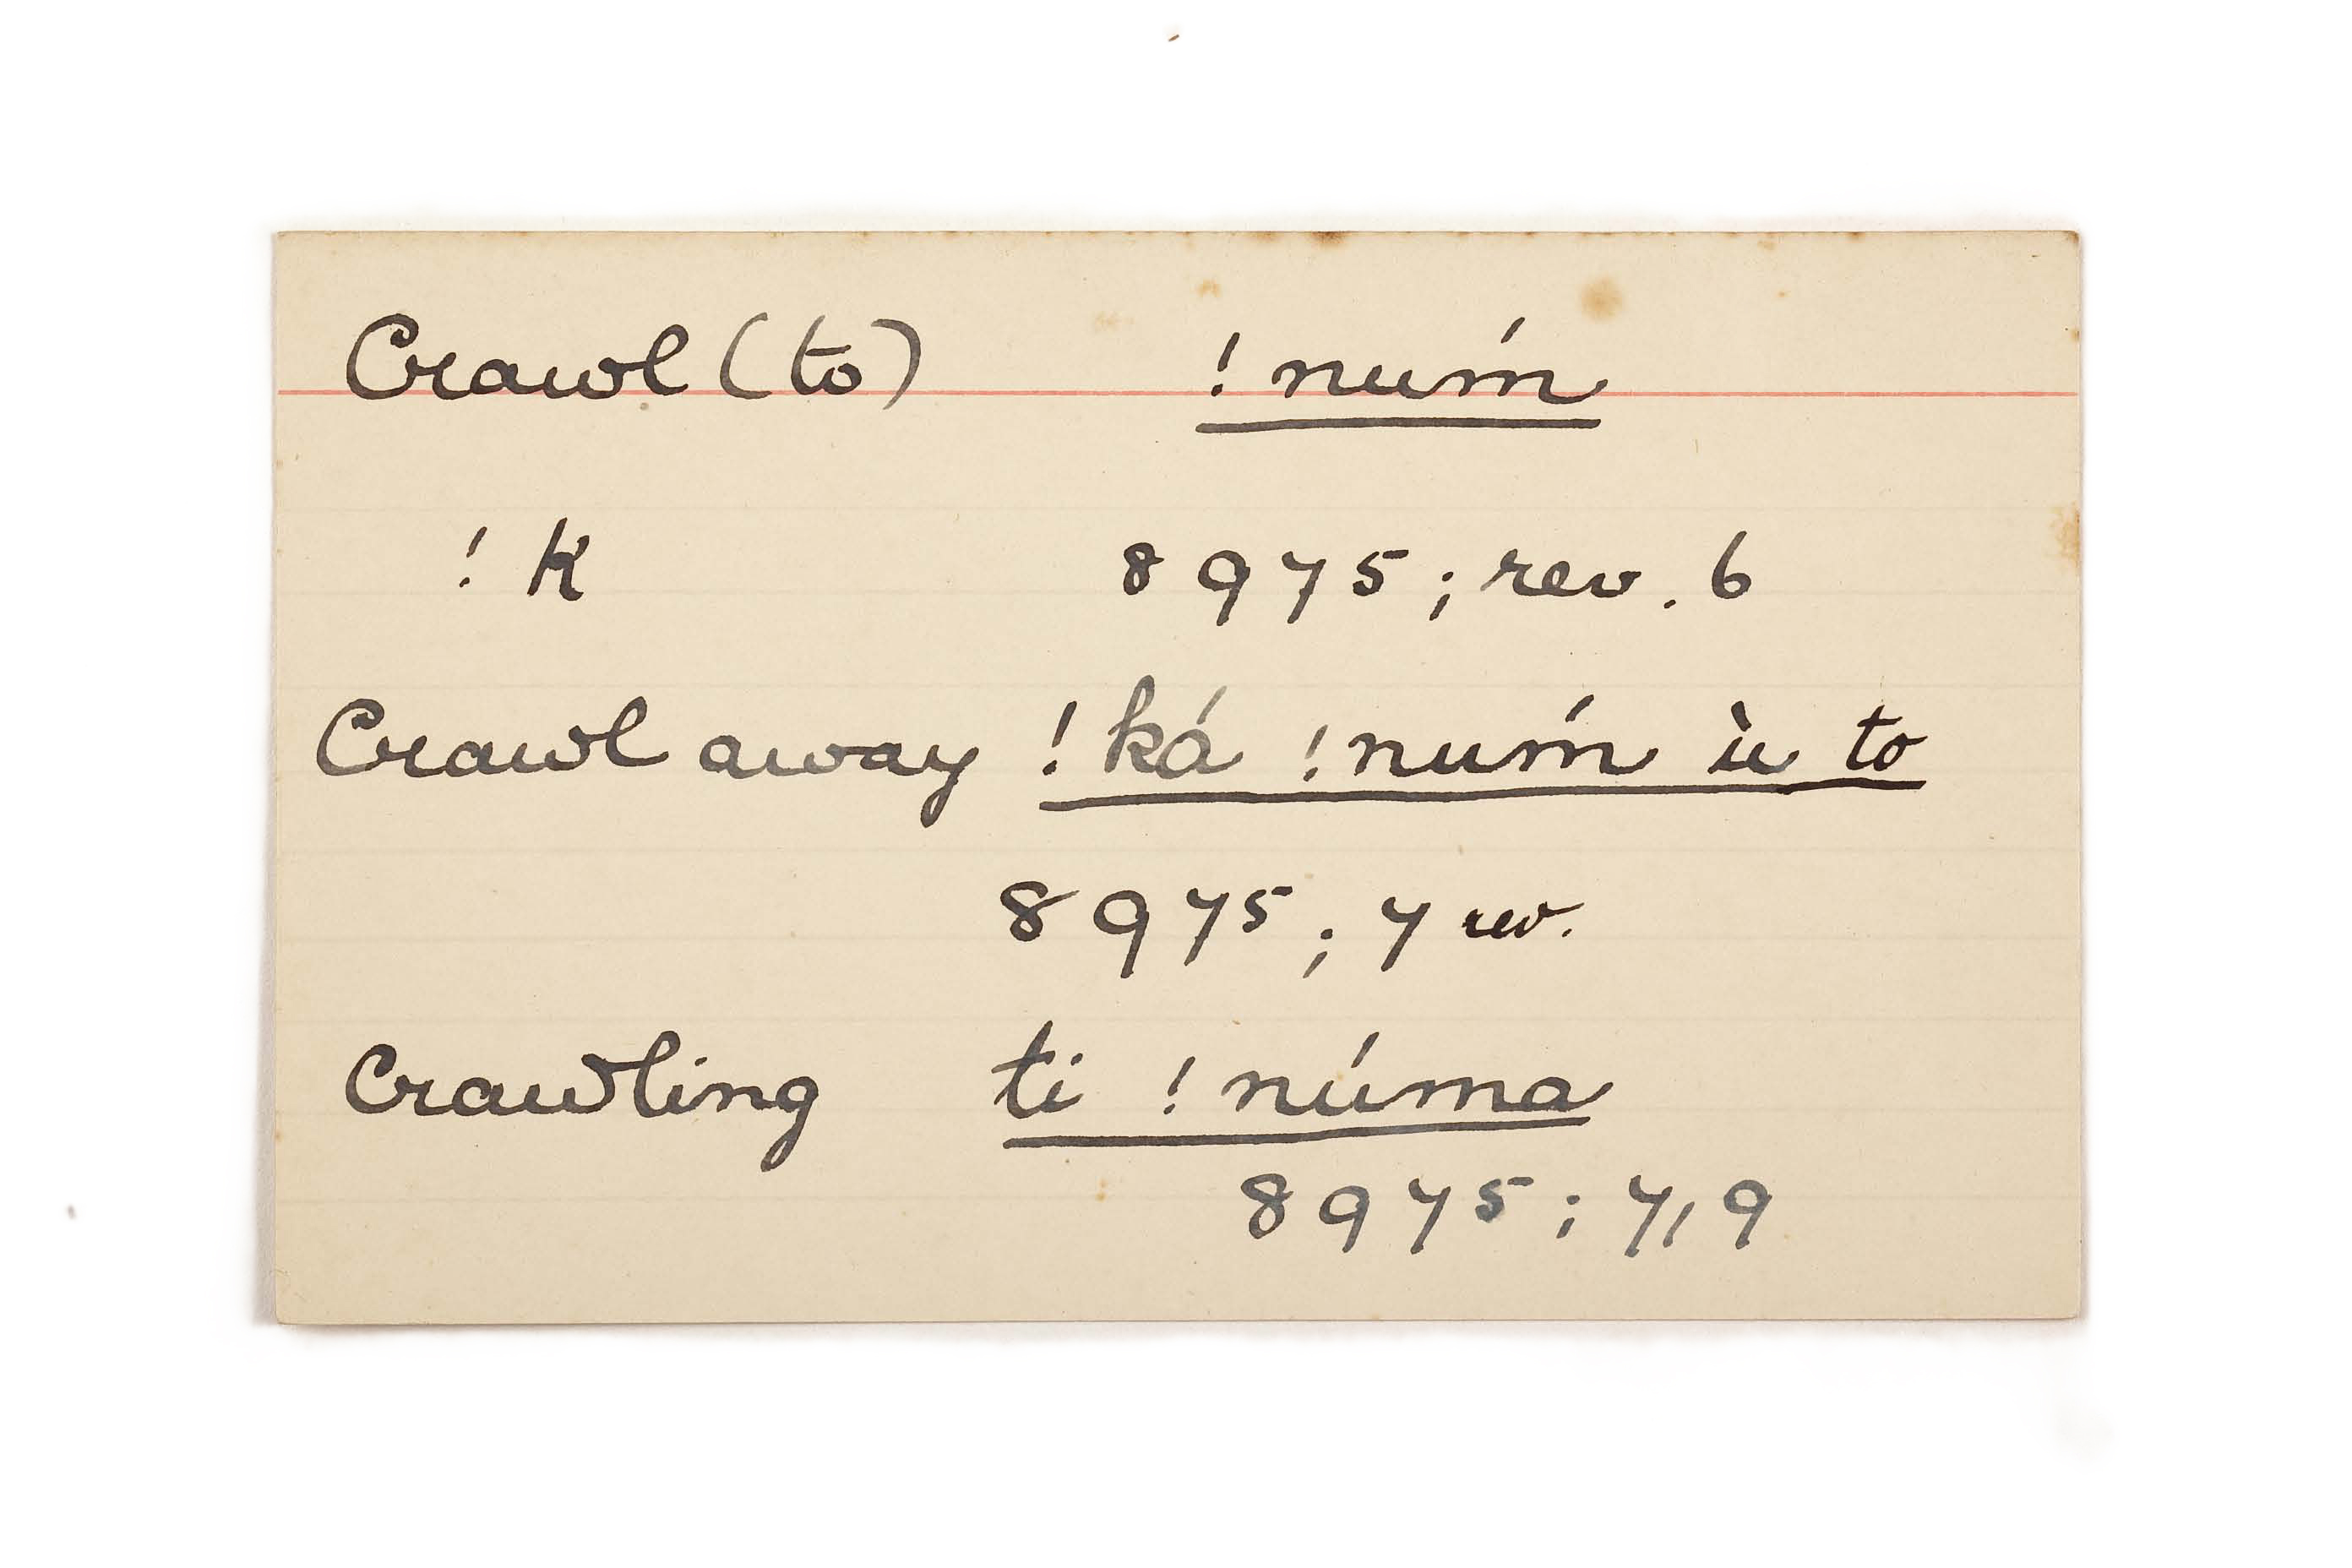 Crawl (to) !nuḿ
!k 8975; rev. 6
Crawl away !ká !nuḿ ù to
8975; 7 rev.
Crawling ti !núma
8975; 7, 9